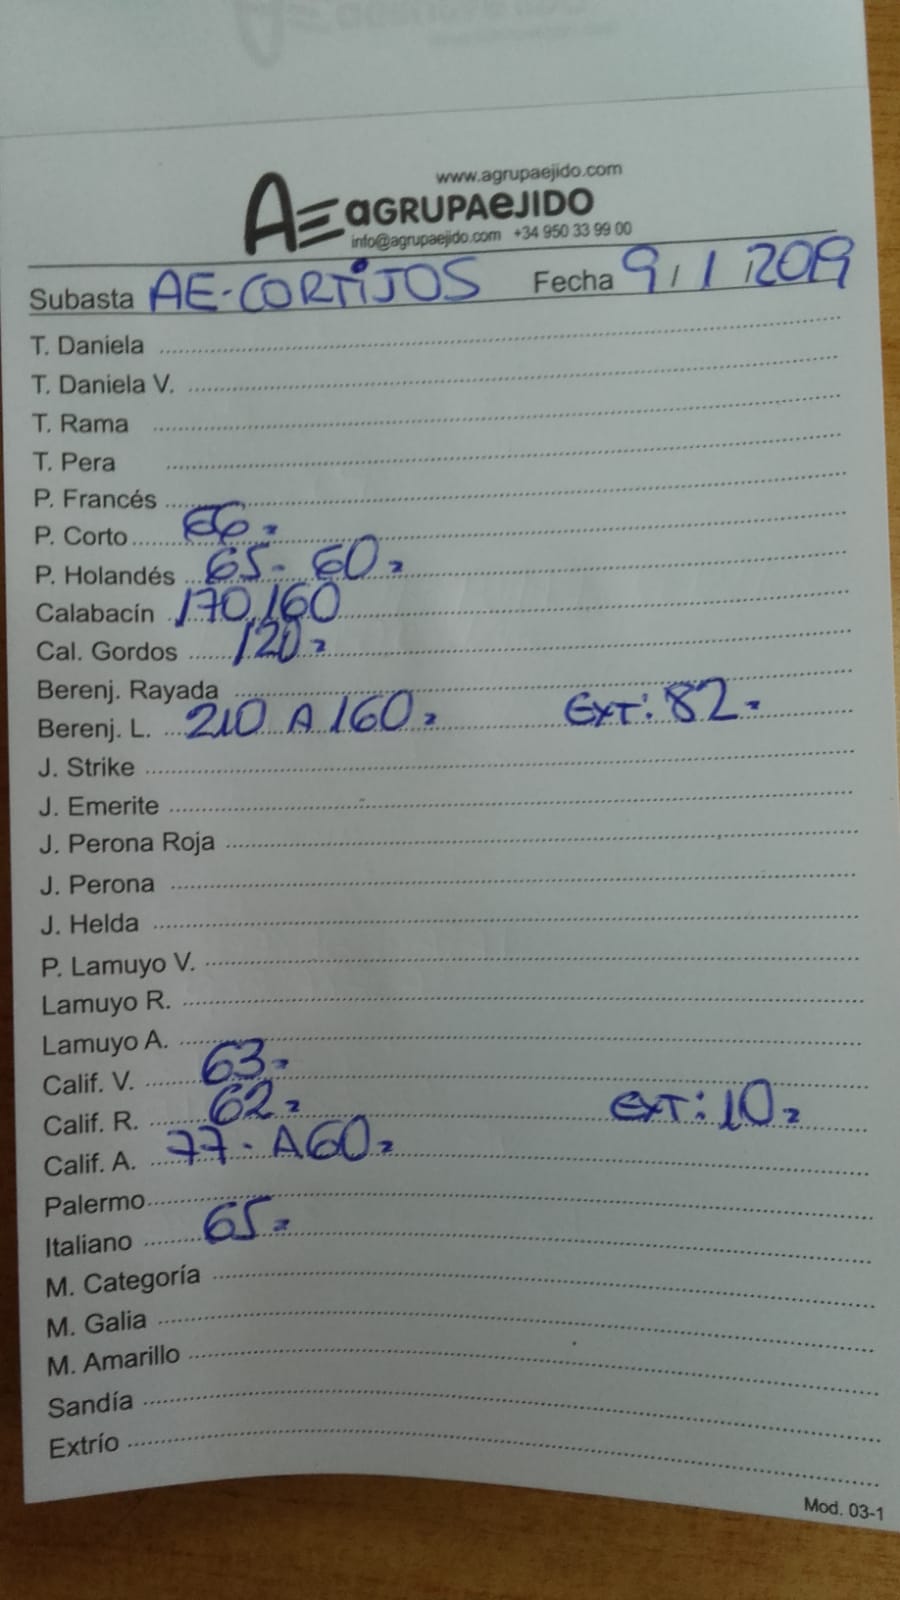 www.agrupaejido.com
AE aGRUPAeJIDO
info@agrupaejido.com +34 950 33 99 00
Subasta AE-CORTIJOS Fecha 9/1/2019
T. Daniela
T. Daniela V.
T. Rama
T. Pera
P. Francés
P. Corto 66=
P. Holandés 65- 60=
Calabacín 170,160
Cal. Gordos 120=
Berenj. Rayada
Berenj. L. 210 A 160= EXT: 82=
J. Strike
J. Emerite
J. Perona Roja
J. Perona
J. Helda
P. Lamuyo V.
Lamuyo R.
Lamuyo A.
Calif. V. 63=
Calif. R. 62= EXT: 10=
Calif. A. 77- A 60=
Palermo
Italiano 65=
M. Categoría
M. Galia
M. Amarillo
Sandía
Extrío
Mod. 03-1